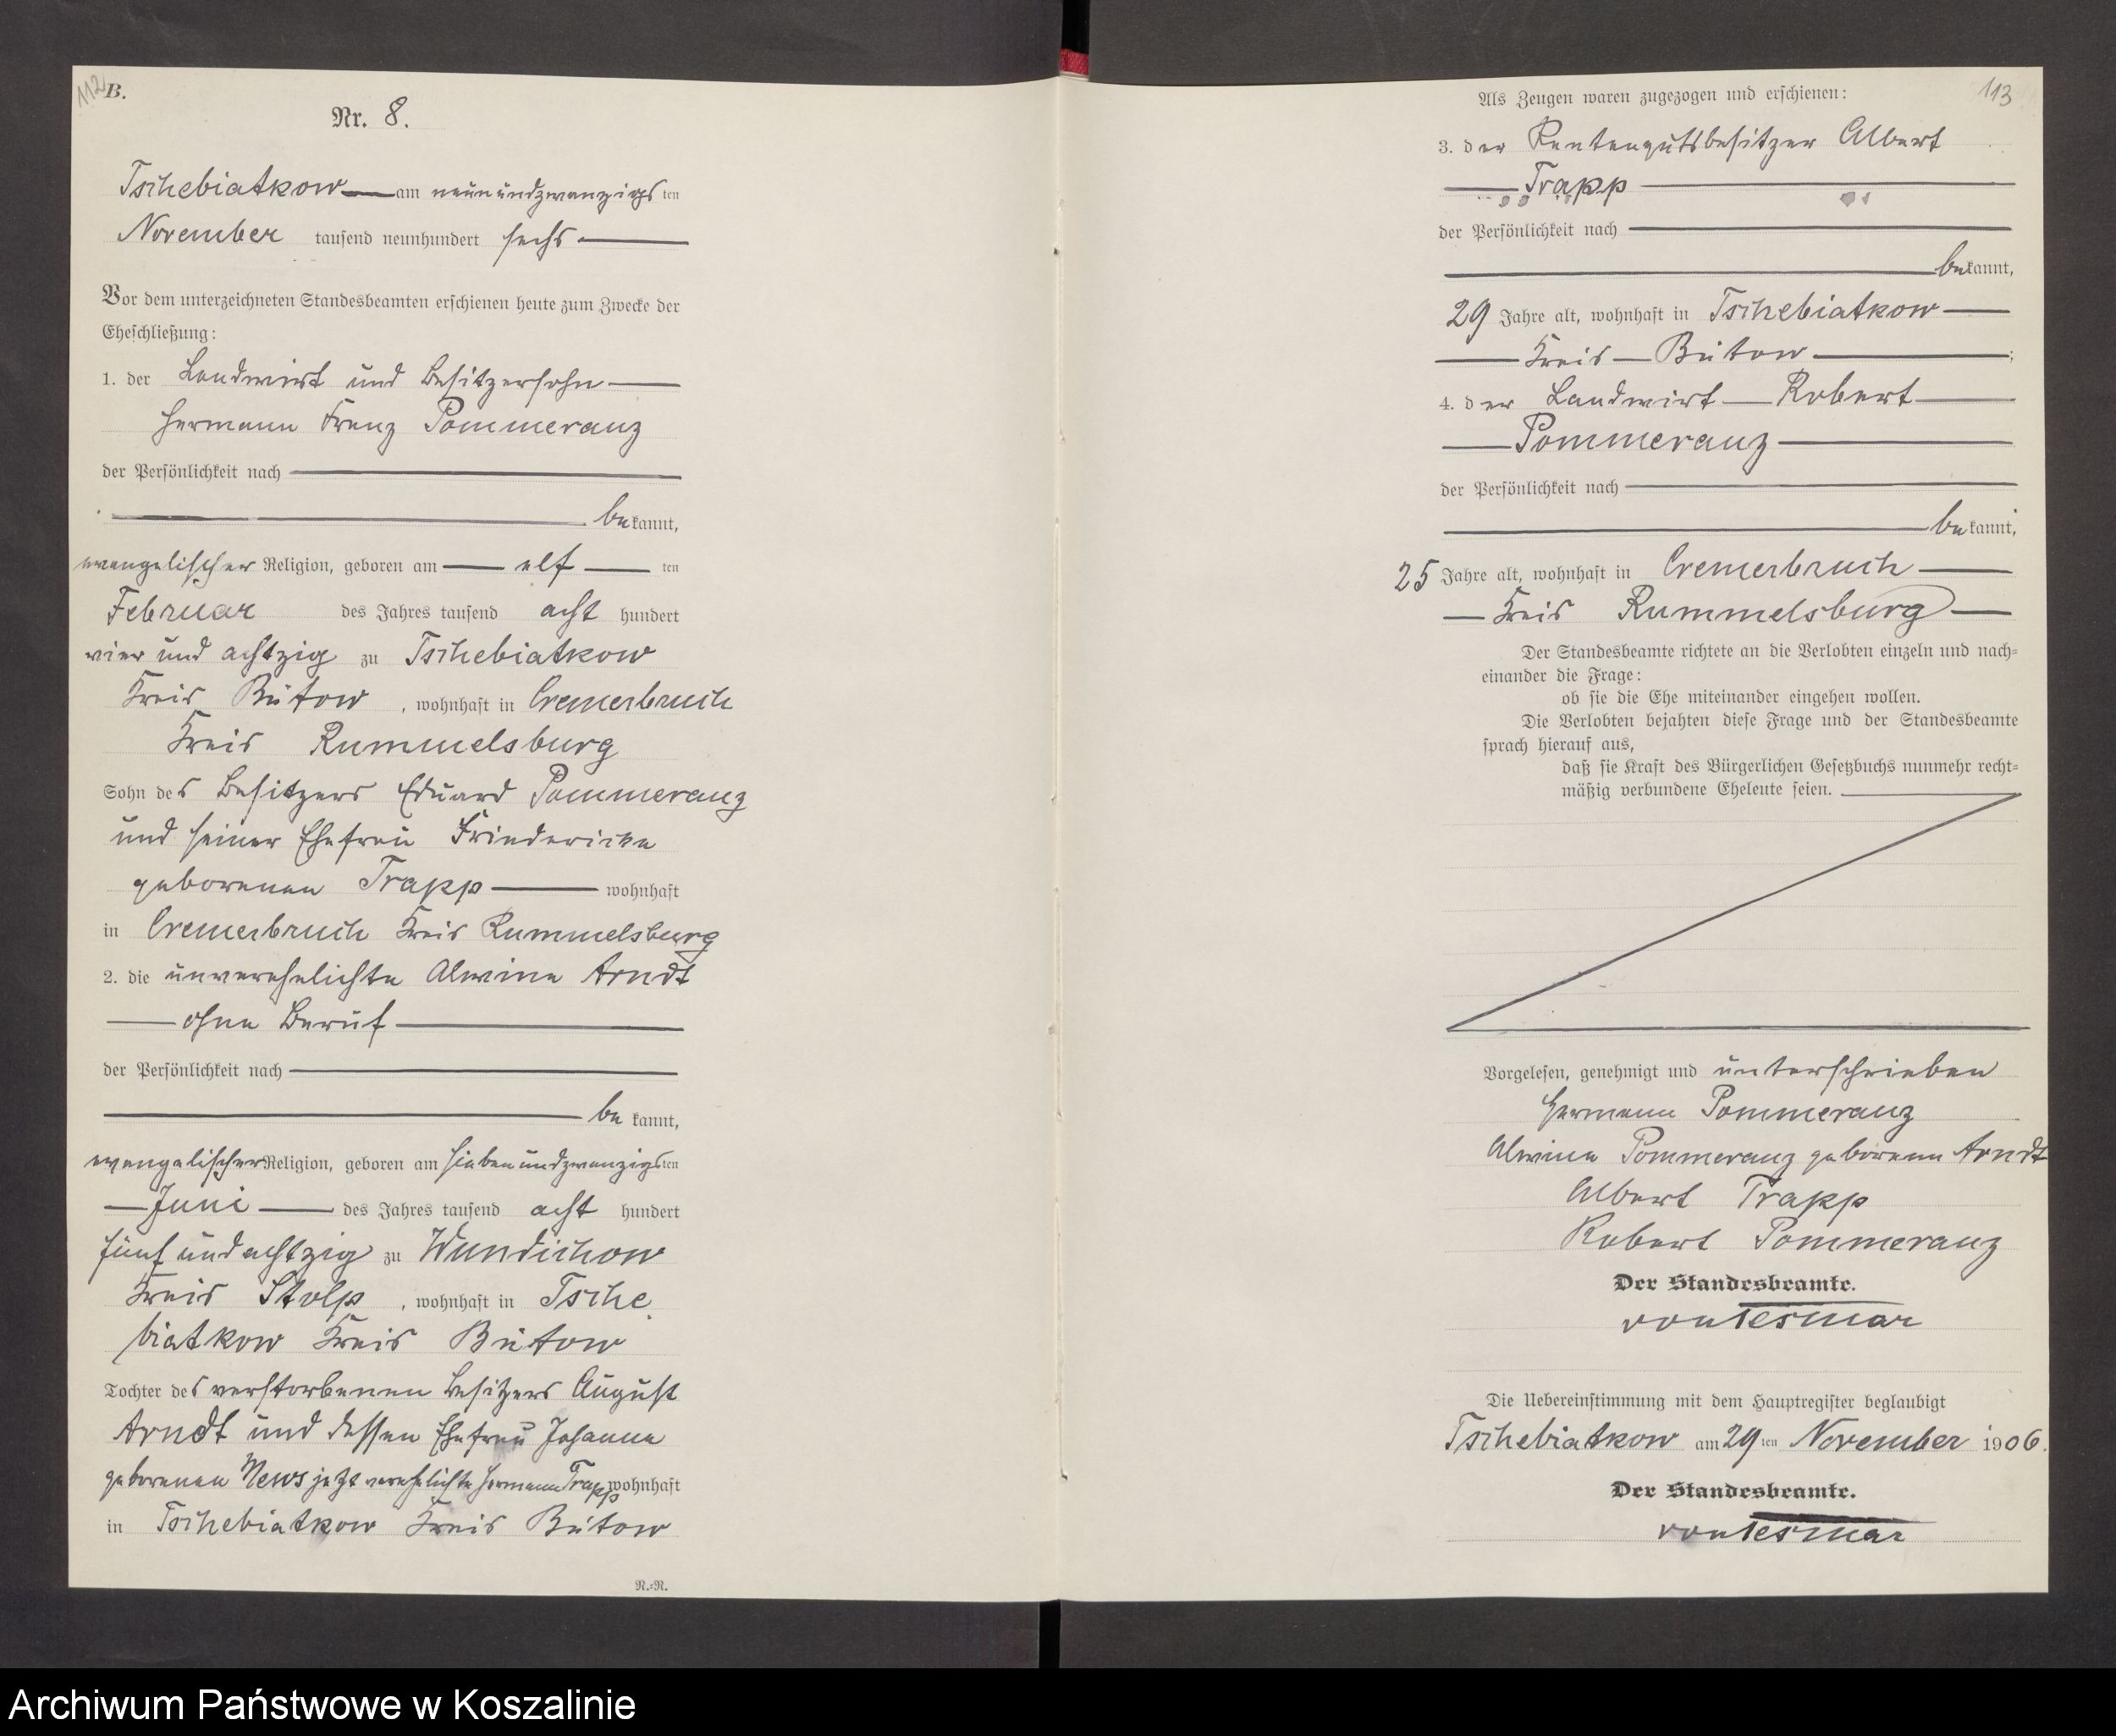 112
B.
Nr. 8.
Tschebiatkow am neunundzwanzigs ten
November tausend neunhundert sechs
Vor dem unterzeichneten Standesbeamten erschienen heute zum Zwecke der
Eheschließung:
1. der Landwirt und Besitzersohn
Hermann Franz Pommeranz
der Persönlichkeit nach
be kannt,
evangelischer Religion, geboren am elf ten
Februar des Jahres tausend acht hundert
vier und achtzig zu Tschebiatkow
Kreis Bütow, wohnhaft in Cremerbruch
Kreis Rummelsburg
Sohn des Besitzers Eduard Pommeranz
und seiner Ehefrau Friedericke
geborenen Trapp wohnhaft
in Cremerbruch Kreis Rummelsburg
2. die unverehelichte Alwine Arndt
ohne Beruf
der Persönlichkeit nach
be kannt,
evangelischer Religion, geboren am siebenundzwanzigs ten
Juni des Jahres tausend acht hundert
fünf und achtzig zu Wundichow
Kreis Stolp, wohnhaft in Tsche
biatkow Kreis Bütow
Tochter des verstorbenen Besitzers August
Arndt und dessen Ehefrau Johanne
geborenen News jetzt verehelichte Hermann Trapp wohnhaft
in Tschebiatkow Kreis Bütow
N.=N.
113
Als Zeugen waren zugezogen und erschienen:
3. der Rentengutsbesitzer Albert
Trapp
der Persönlichkeit nach
be kannt,
29 Jahre alt, wohnhaft in Tschebiatkow
Kreis Bütow;
4. der Landwirt Robert
Pommeranz
der Persönlichkeit nach
be kannt,
25 Jahre alt, wohnhaft in Cremerbruch
Kreis Rummelsburg
Der Standesbeamte richtete an die Verlobten einzeln und nach=
einander die Frage:
ob sie die Ehe miteinander eingehen wollen.
Die Verlobten bejahten diese Frage und der Standesbeamte
sprach hierauf aus,
daß sie Kraft des Bürgerlichen Gesetzbuchs nunmehr recht=
mäßig verbundene Eheleute seien.
Vorgelesen, genehmigt und unterschrieben
Hermann Pommeranz
Alwine Pommeranz geborene Arndt
Albert Trapp
Robert Pommeranz
Der Standesbeamte.
von Tesmar
Die Uebereinstimmung mit dem Hauptregister beglaubigt
Tschebiatkow am 29 ten November 1906.
Der Standesbeamte.
von Tesmar
Archiwum Państwowe w Koszalinie